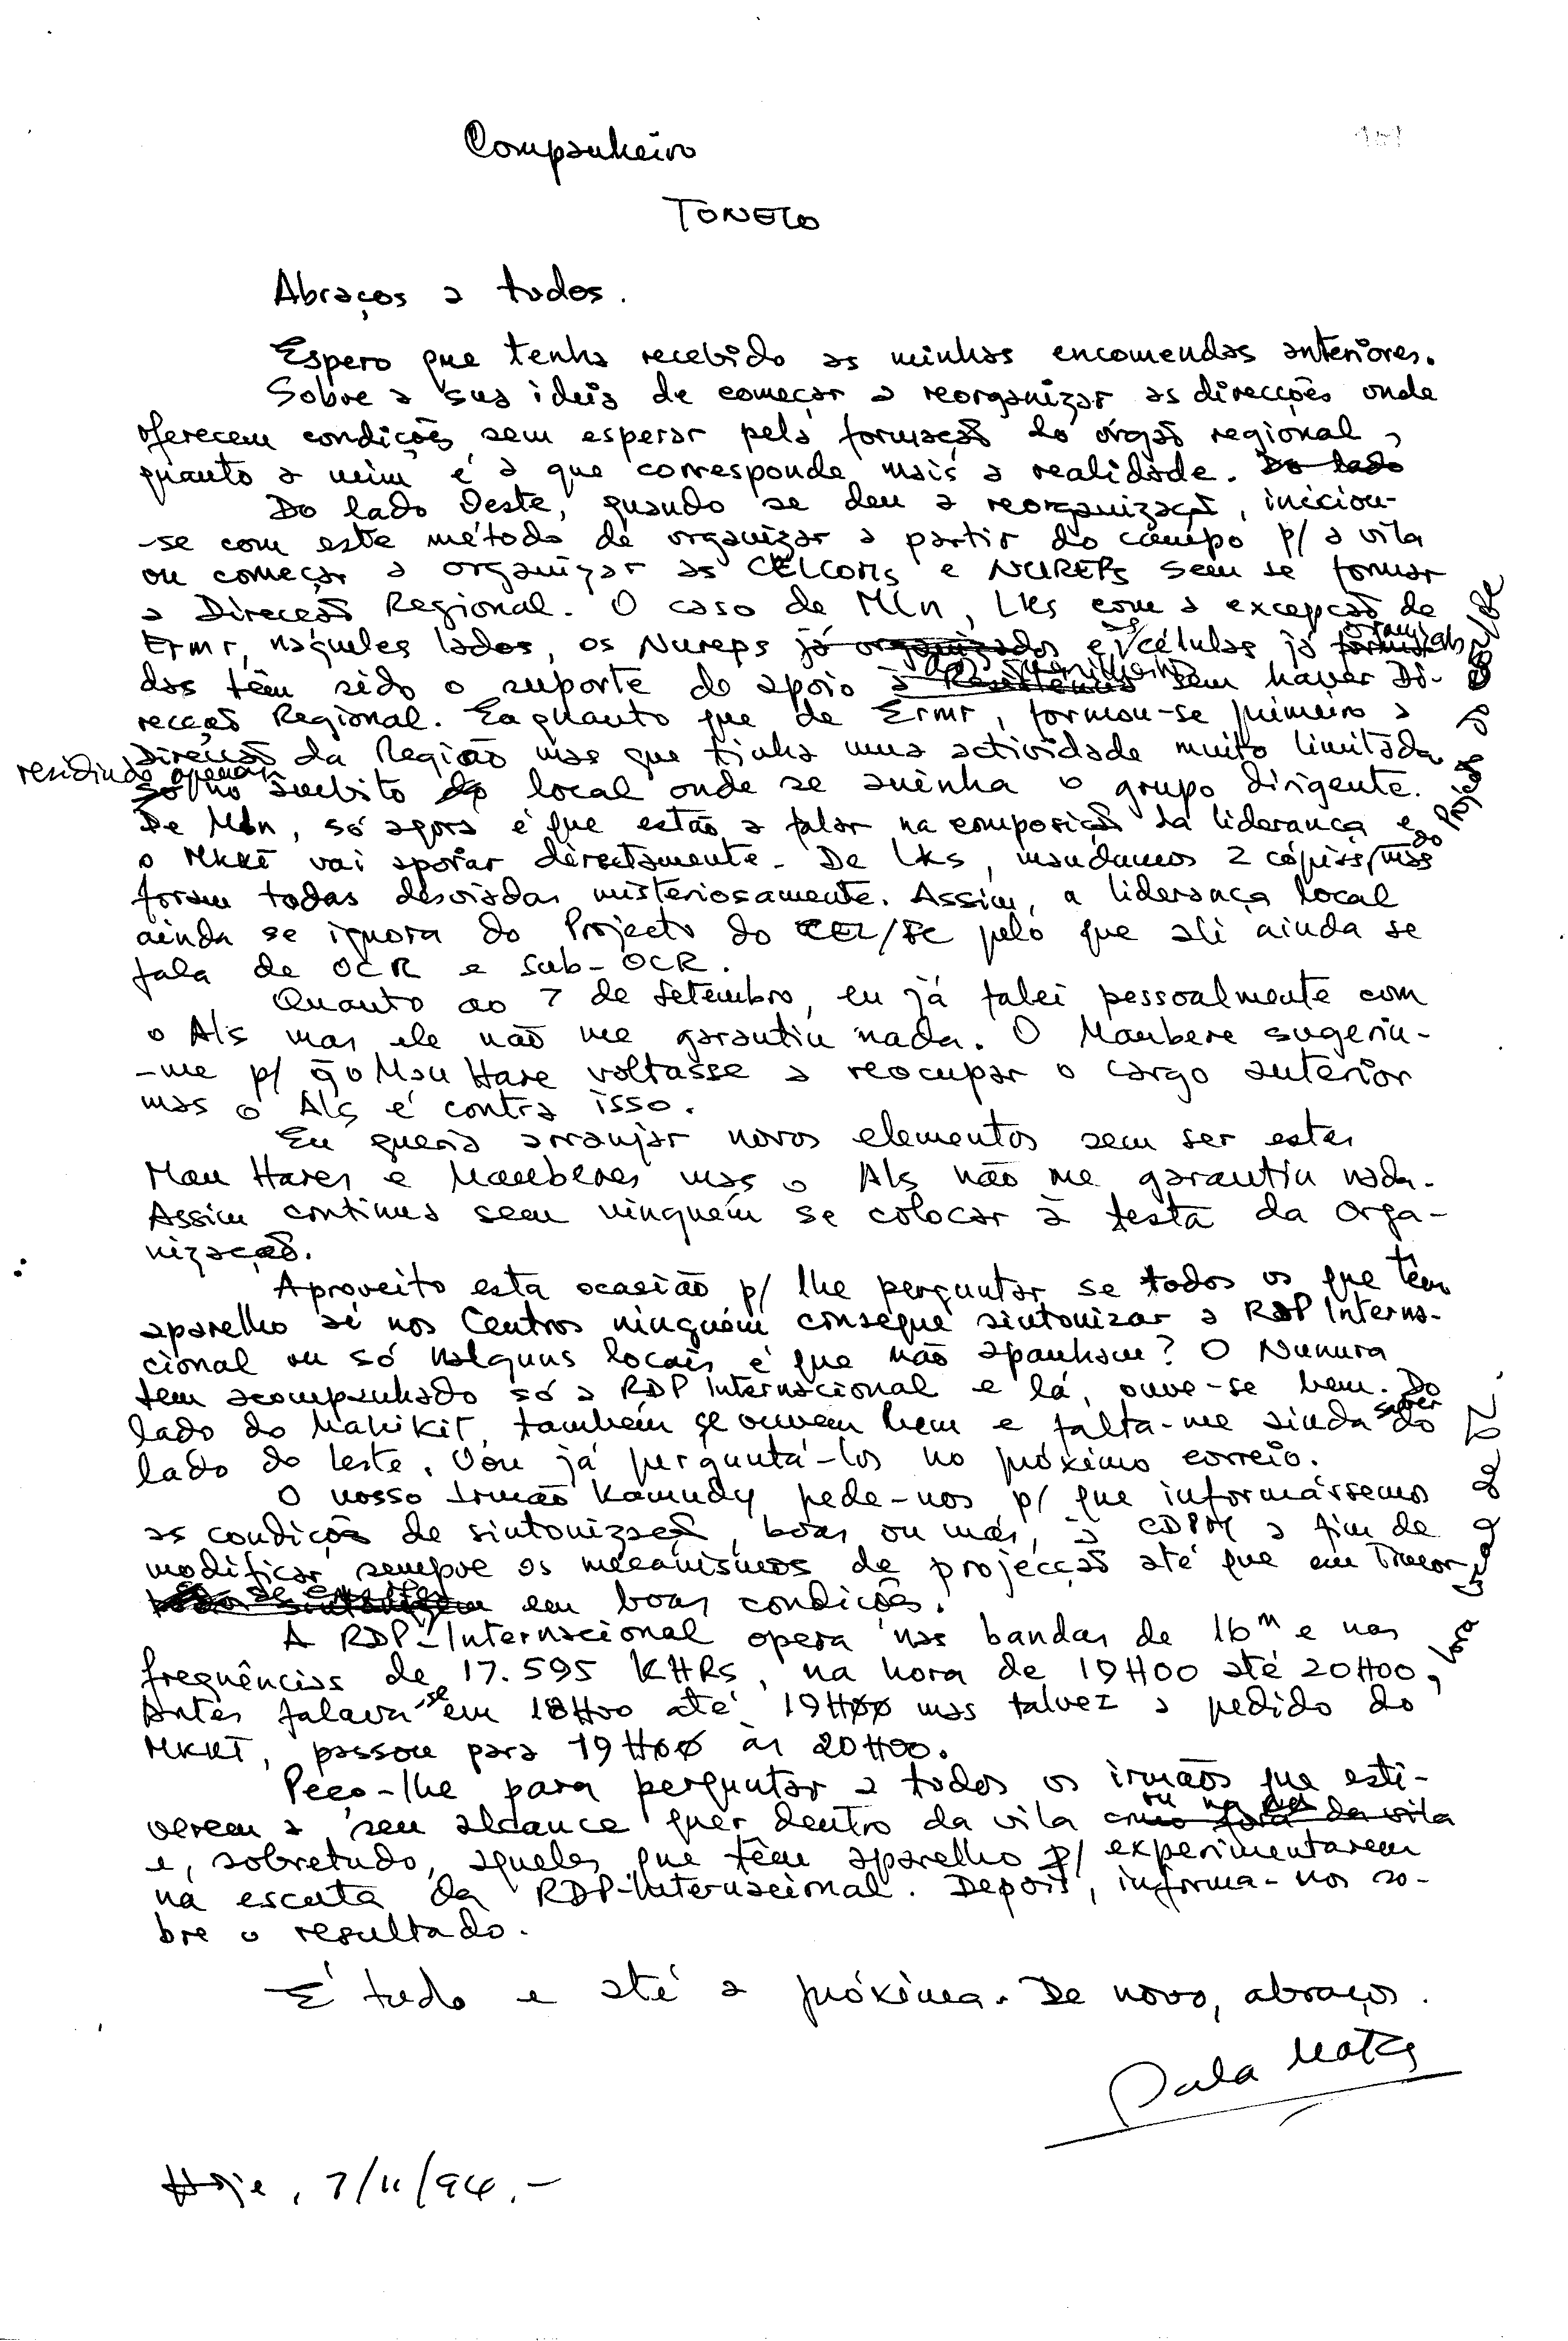 Companheiro
TONELO
Abraços a todos.
Espero que tenha recebido as minhas encomendas anteriores.
Sobre a sua ideia de começar a reorganizar as direcções onde
oferecem condições, sem esperar pela formação do órgão regional,
quanto a mim é a que corresponde mais a realidade. Do lado
Do lado Oeste, quando se deu a reorganização, iniciou-
-se com este método de organizar a partir do campo p/ a vila
ou começar a organizar as CELCOMs e NUREPs sem se formar
a Direcção Regional. O caso de Mln, Lks com a excepção de
Ermr, naqueles lados, os Nureps já organizados e as células já organiza
das têm sido o suporte de apoio à Resistência das guerrilhas sem haver Di-
recção Regional. Enquanto que de Ermr, formou-se primeiro a
Direcção da Região mas que tinha uma actividade muito limitada,
residindo apenas
só no âmbito do local onde se aninha o grupo dirigente.
De Mln, só agora é que estão a falar na composição da liderança e
o MKKT vai apoiar directamente. De Lks, mandámos 2 cópias do Projecto do CEL/FC mas
foram todas desviadas misteriosamente. Assim, a liderança local
ainda se ignora do Projecto do CEL/FC pelo que ali ainda se
fala de OCR e Sub-OCR.
Quanto ao 7 de Setembro, eu já falei pessoalmente com
o Als mas ele não me garantiu nada. O Maubere sugeriu-
-me p/ q̄ o Mau Hare voltasse a reocupar o cargo anterior
mas o Als é contra isso.
Eu queria arranjar novos elementos sem ser estes
Mau Hares e Mauberes mas o Als não me garantiu nada.
Assim continua sem ninguém se colocar à testa da Orga-
nização.
Aproveito esta ocasião p/ lhe perguntar se todos os que têm
aparelho aí nos Centros ninguém consegue sintonizar a RDP Interna-
cional ou só nalguns locais é que não apanham? O Nunura
tem acompanhado só a RDP Internacional e lá, ouve-se bem. Do
lado do Mahikit, também se ouvem bem e falta-me ainda saber do
lado do leste. Vou já perguntá-los no próximo correio.
O nosso Irmão Kamudy pede-nos p/ que informássemos
as condições de sintonização, boas ou más, à CDPM a fim de
modificar sempre os mecanismos de projecção até que em Timor
se em boas condições.
A RDP-Internacional opera nas bandas de 16m e nas
frequências de 17.595 KHRs, na hora de 19H00 até 20H00, hora local de TL.
Antes falava-se em 18H00 até 19H00 mas talvez a pedido do
MKKT, passou para 19H00 às 20H00.
Peço-lhe para perguntar a todos os irmãos que esti-
verem a seu alcance quer dentro da vila como fora da vila
e, sobretudo, aqueles que têm aparelho p/ experimentarem
na escuta da RDP-Internacional. Depois, informa-nos so-
bre o resultado.
É tudo e até a próxima. De novo, abraços.
Sala Mata
Hoje, 7/11/94.-